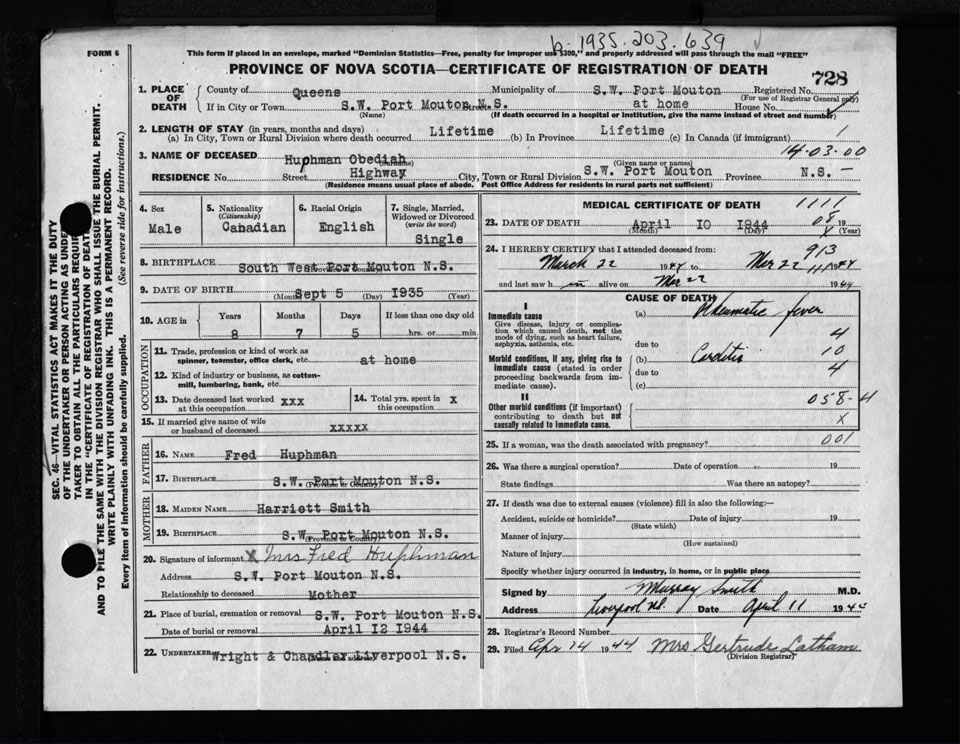 b. 1935. 203. 639
FORM 6
This form if placed in an envelope, marked "Dominion Statistics—Free, penalty for improper use $300," and properly addressed will pass through the mail "FREE"
PROVINCE OF NOVA SCOTIA—CERTIFICATE OF REGISTRATION OF DEATH
728
1. PLACE OF DEATH
County of Queens Municipality of S.W. Port Mouton Registered No.
(For use of Registrar General only)
If in City or Town S.W. Port Mouton N.S. Street at home House No.
(Name) (If death occurred in a hospital or institution, give the name instead of street and number)
2. LENGTH OF STAY (in years, months and days)
(a) In City, Town or Rural Division where death occurred Lifetime (b) In Province Lifetime (c) In Canada (if immigrant) 1
14-03-00
3. NAME OF DECEASED Huphman Obediah
(Surname) (Given name or names)
RESIDENCE No. Street Highway City, Town or Rural Division S.W. Port Mouton Province N.S. -
(Residence means usual place of abode. Post Office Address for residents in rural parts not sufficient)
4. Sex Male
5. Nationality (Citizenship) Canadian
6. Racial Origin English
7. Single, Married, Widowed or Divorced (write the word) Single
8. BIRTHPLACE South West Port Mouton N.S.
(Province or Country)
9. DATE OF BIRTH Sept 5 1935
(Month) (Day) (Year)
10. AGE in Years Months Days If less than one day old
8 7 5 hrs. or min.
OCCUPATION
11. Trade, profession or kind of work as spinner, teamster, office clerk, etc. at home
12. Kind of industry or business, as cotton-mill, lumbering, bank, etc.
13. Date deceased last worked at this occupation xxx
14. Total yrs. spent in this occupation x
15. If married give name of wife or husband of deceased xxxxx
FATHER
16. NAME Fred Huphman
17. BIRTHPLACE S.W. Port Mouton N.S.
(Province or Country)
MOTHER
18. MAIDEN NAME Harriett Smith
19. BIRTHPLACE S.W. Port Mouton N.S.
(Province or Country)
20. Signature of informant X Mrs Fred Huphman
Address S.W. Port Mouton N.S.
Relationship to deceased Mother
21. Place of burial, cremation or removal S.W. Port Mouton N.S.
Date of burial or removal April I2 I944
22. UNDERTAKER Wright & Chandler Liverpool N.S.
MEDICAL CERTIFICATE OF DEATH 1111
23. DATE OF DEATH April IO I944 08 19
(Month) (Day) (Year)
24. I HEREBY CERTIFY that I attended deceased from: 913
March 22 1944 to Mar 22 1944
and last saw h im alive on Mar 22 1944
CAUSE OF DEATH
I
Immediate cause
Give disease, injury or complication which caused death, not the mode of dying, such as heart failure, asphyxia, asthenia, etc.
(a) Rheumatic fever
due to 4
Morbid conditions, if any, giving rise to immediate cause (stated in order proceeding backwards from immediate cause).
(b) Carditis 10
due to 4
(c)
II
Other morbid conditions (if important) contributing to death but not causally related to immediate cause.
058-4
X
25. If a woman, was the death associated with pregnancy? 001
26. Was there a surgical operation? Date of operation 19
State findings Was there an autopsy?
27. If death was due to external causes (violence) fill in also the following:—
Accident, suicide or homicide? Date of injury 19
(State which)
Manner of injury
(How sustained)
Nature of injury
Specify whether injury occurred in industry, in home, or in public place
Signed by Murray Smith M.D.
Address Liverpool N.S. Date April 11 1944
28. Registrar's Record Number
29. Filed Apr 14 1944 Mrs Gertrude Latham
(Division Registrar)
SEC. 46—VITAL STATISTICS ACT MAKES IT THE DUTY
OF THE UNDERTAKER OR PERSON ACTING AS UNDER
TAKER TO OBTAIN ALL THE PARTICULARS REQUIRED
IN THE "CERTIFICATE OF REGISTRATION OF DEATH"
AND TO FILE THE SAME WITH THE DIVISION REGISTRAR WHO SHALL ISSUE THE BURIAL PERMIT.
WRITE PLAINLY WITH UNFADING INK. THIS IS A PERMANENT RECORD.
Every item of information should be carefully supplied. (See reverse side for instructions.)